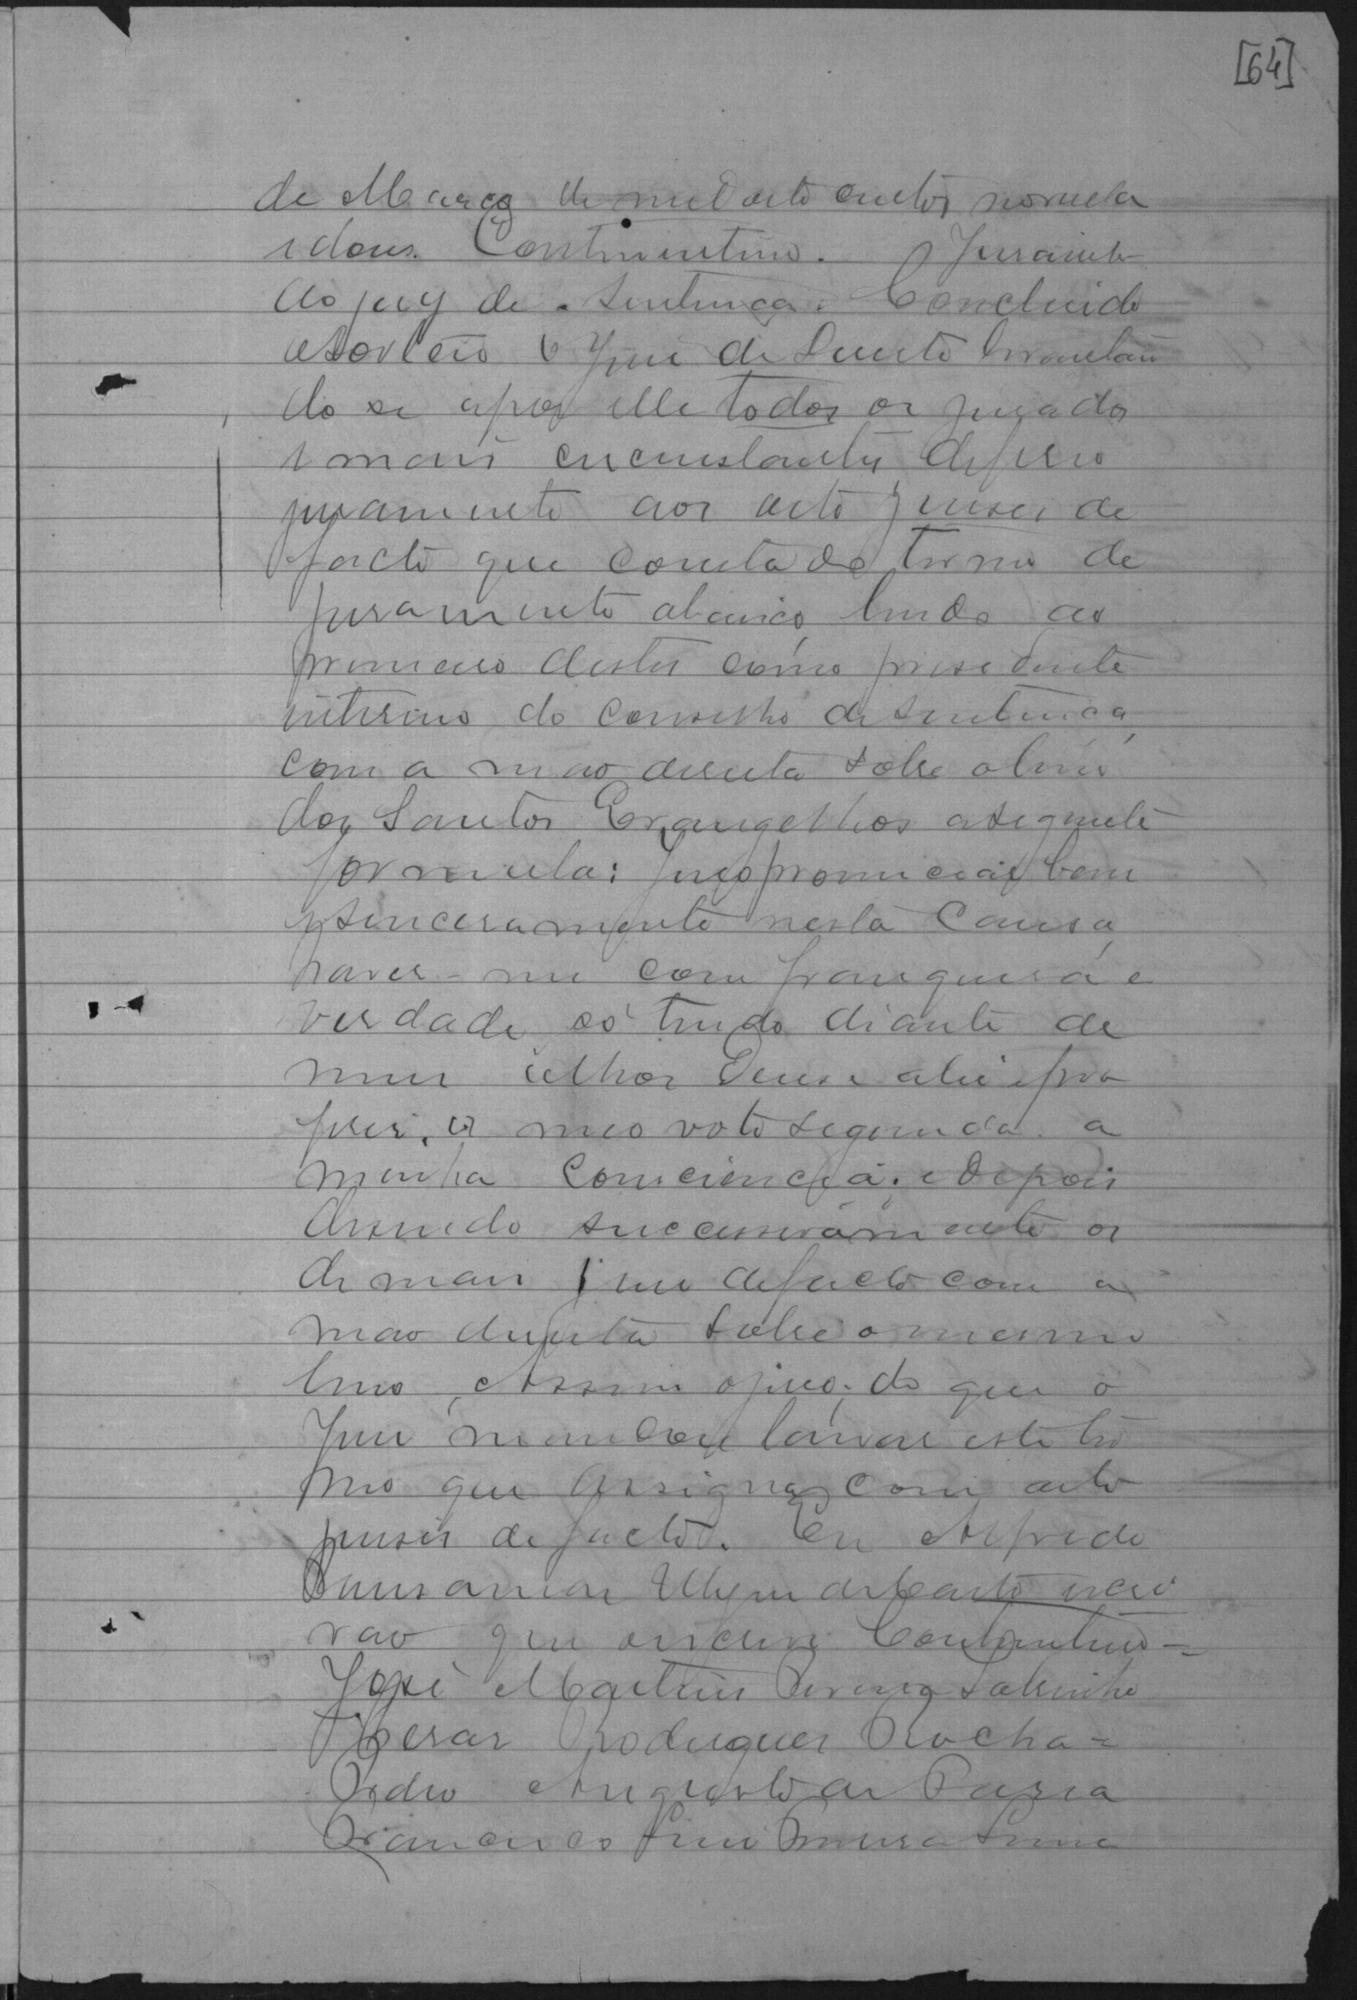 [64]
de Março de mil oito centos noventa
e dous. Constantino. Juramento
do jury de sentença. Concluido
o sorteio o Juiz de Direito levantan
do se apos elle todos os jurados
e mais circunstantes deferio
juramento aos oito juises de
facto que consta do termo de
juramento abaixo, lendo ao
primeiro destes como presidente
interino do conselho de sentença
com a mão direita sobre o livro
dos Santos Evangelhos a seguinte
formula: Juro pronunciar bem
e sinceramente nesta Causa
haver-me com franquesa e
verdade só tendo diante de
meus olhos Deus e a lei e pro
ferir o meo voto segundo a
minha Consciencia; e depois
disendo successivamente os
demais juises de facto com a
mão direita sobre o mesmo
livro, Assim o juro; do que o
Juiz mandou lavrar este ter
mo que assigna com oito
juises de facto. Eu Alfredo
de Castro escri
vão que escrevi Constantino=
José Martins Pereira Sobrinho
Cesar Rodrigues Rocha=
Pedro Augusto de Faria
Francisco